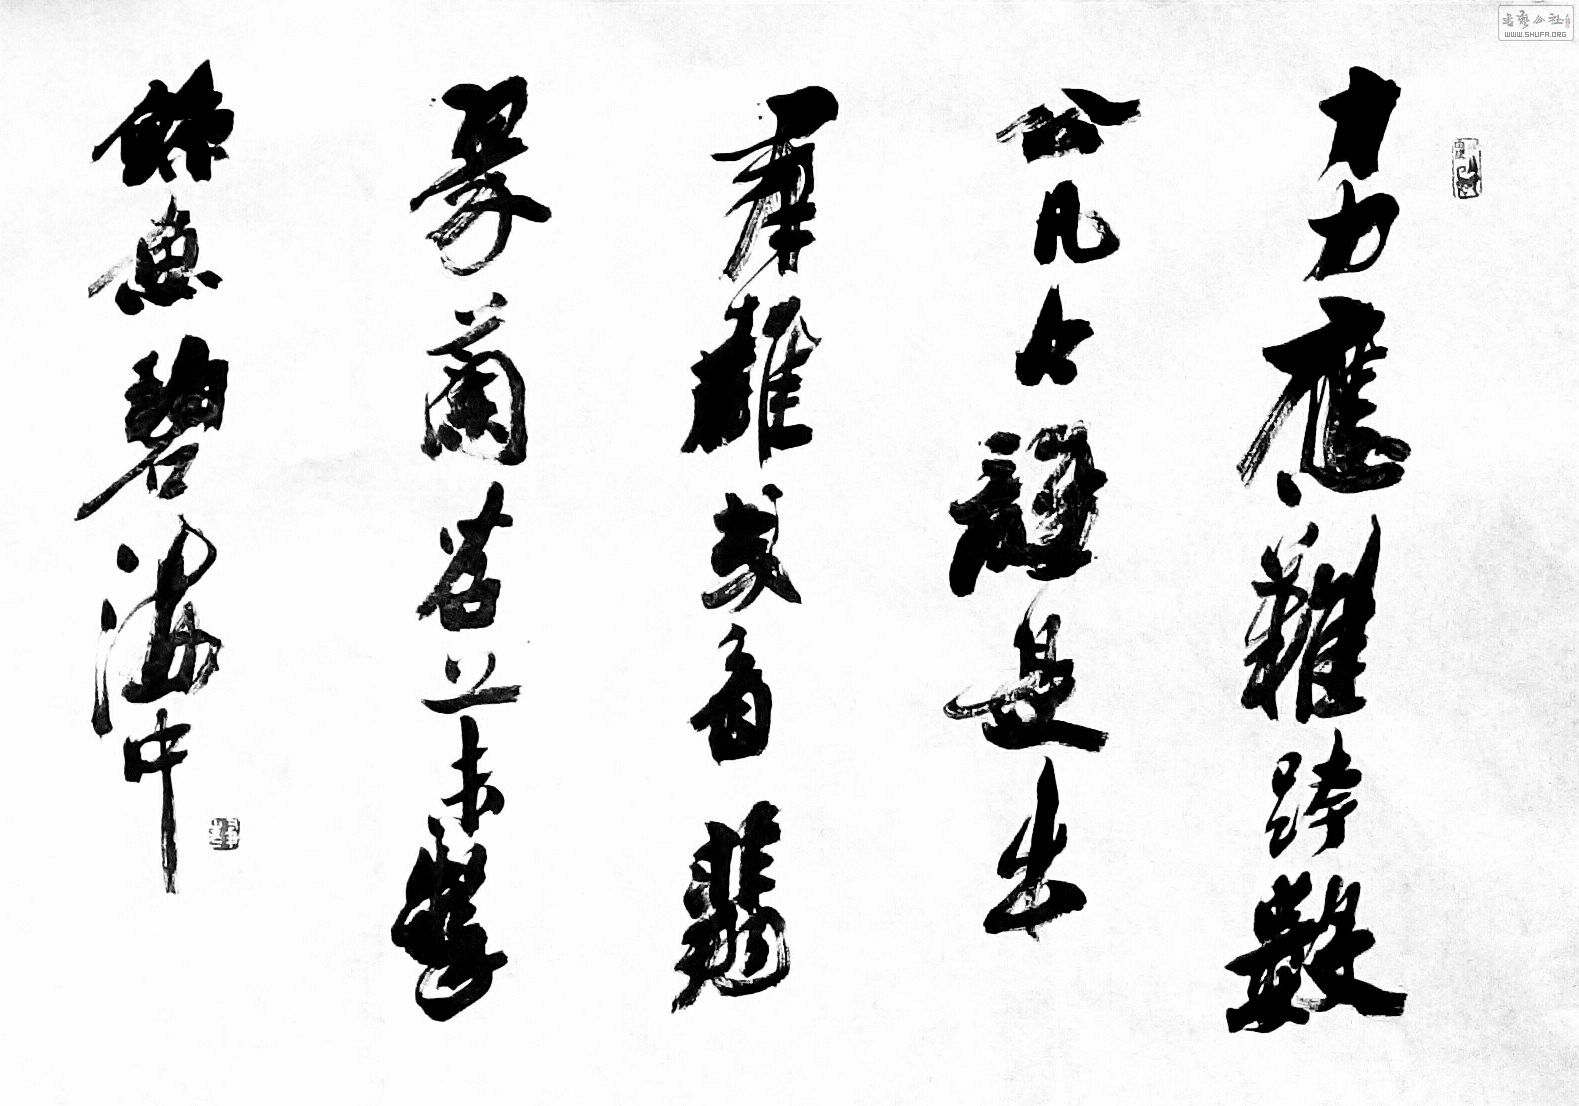 才力應難跨數
公凡今誰是出
羣雄或看翡
翠蘭苕上未掣
鯨魚碧海中
書藝公社
WWW.SHUFA.ORG